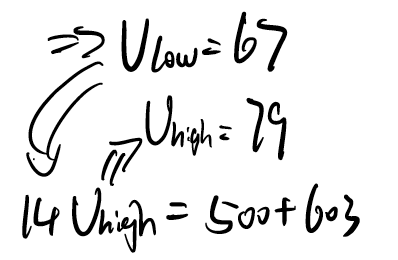 ⇒ U low = 67
U high = 79
14 U high = 500 + 603